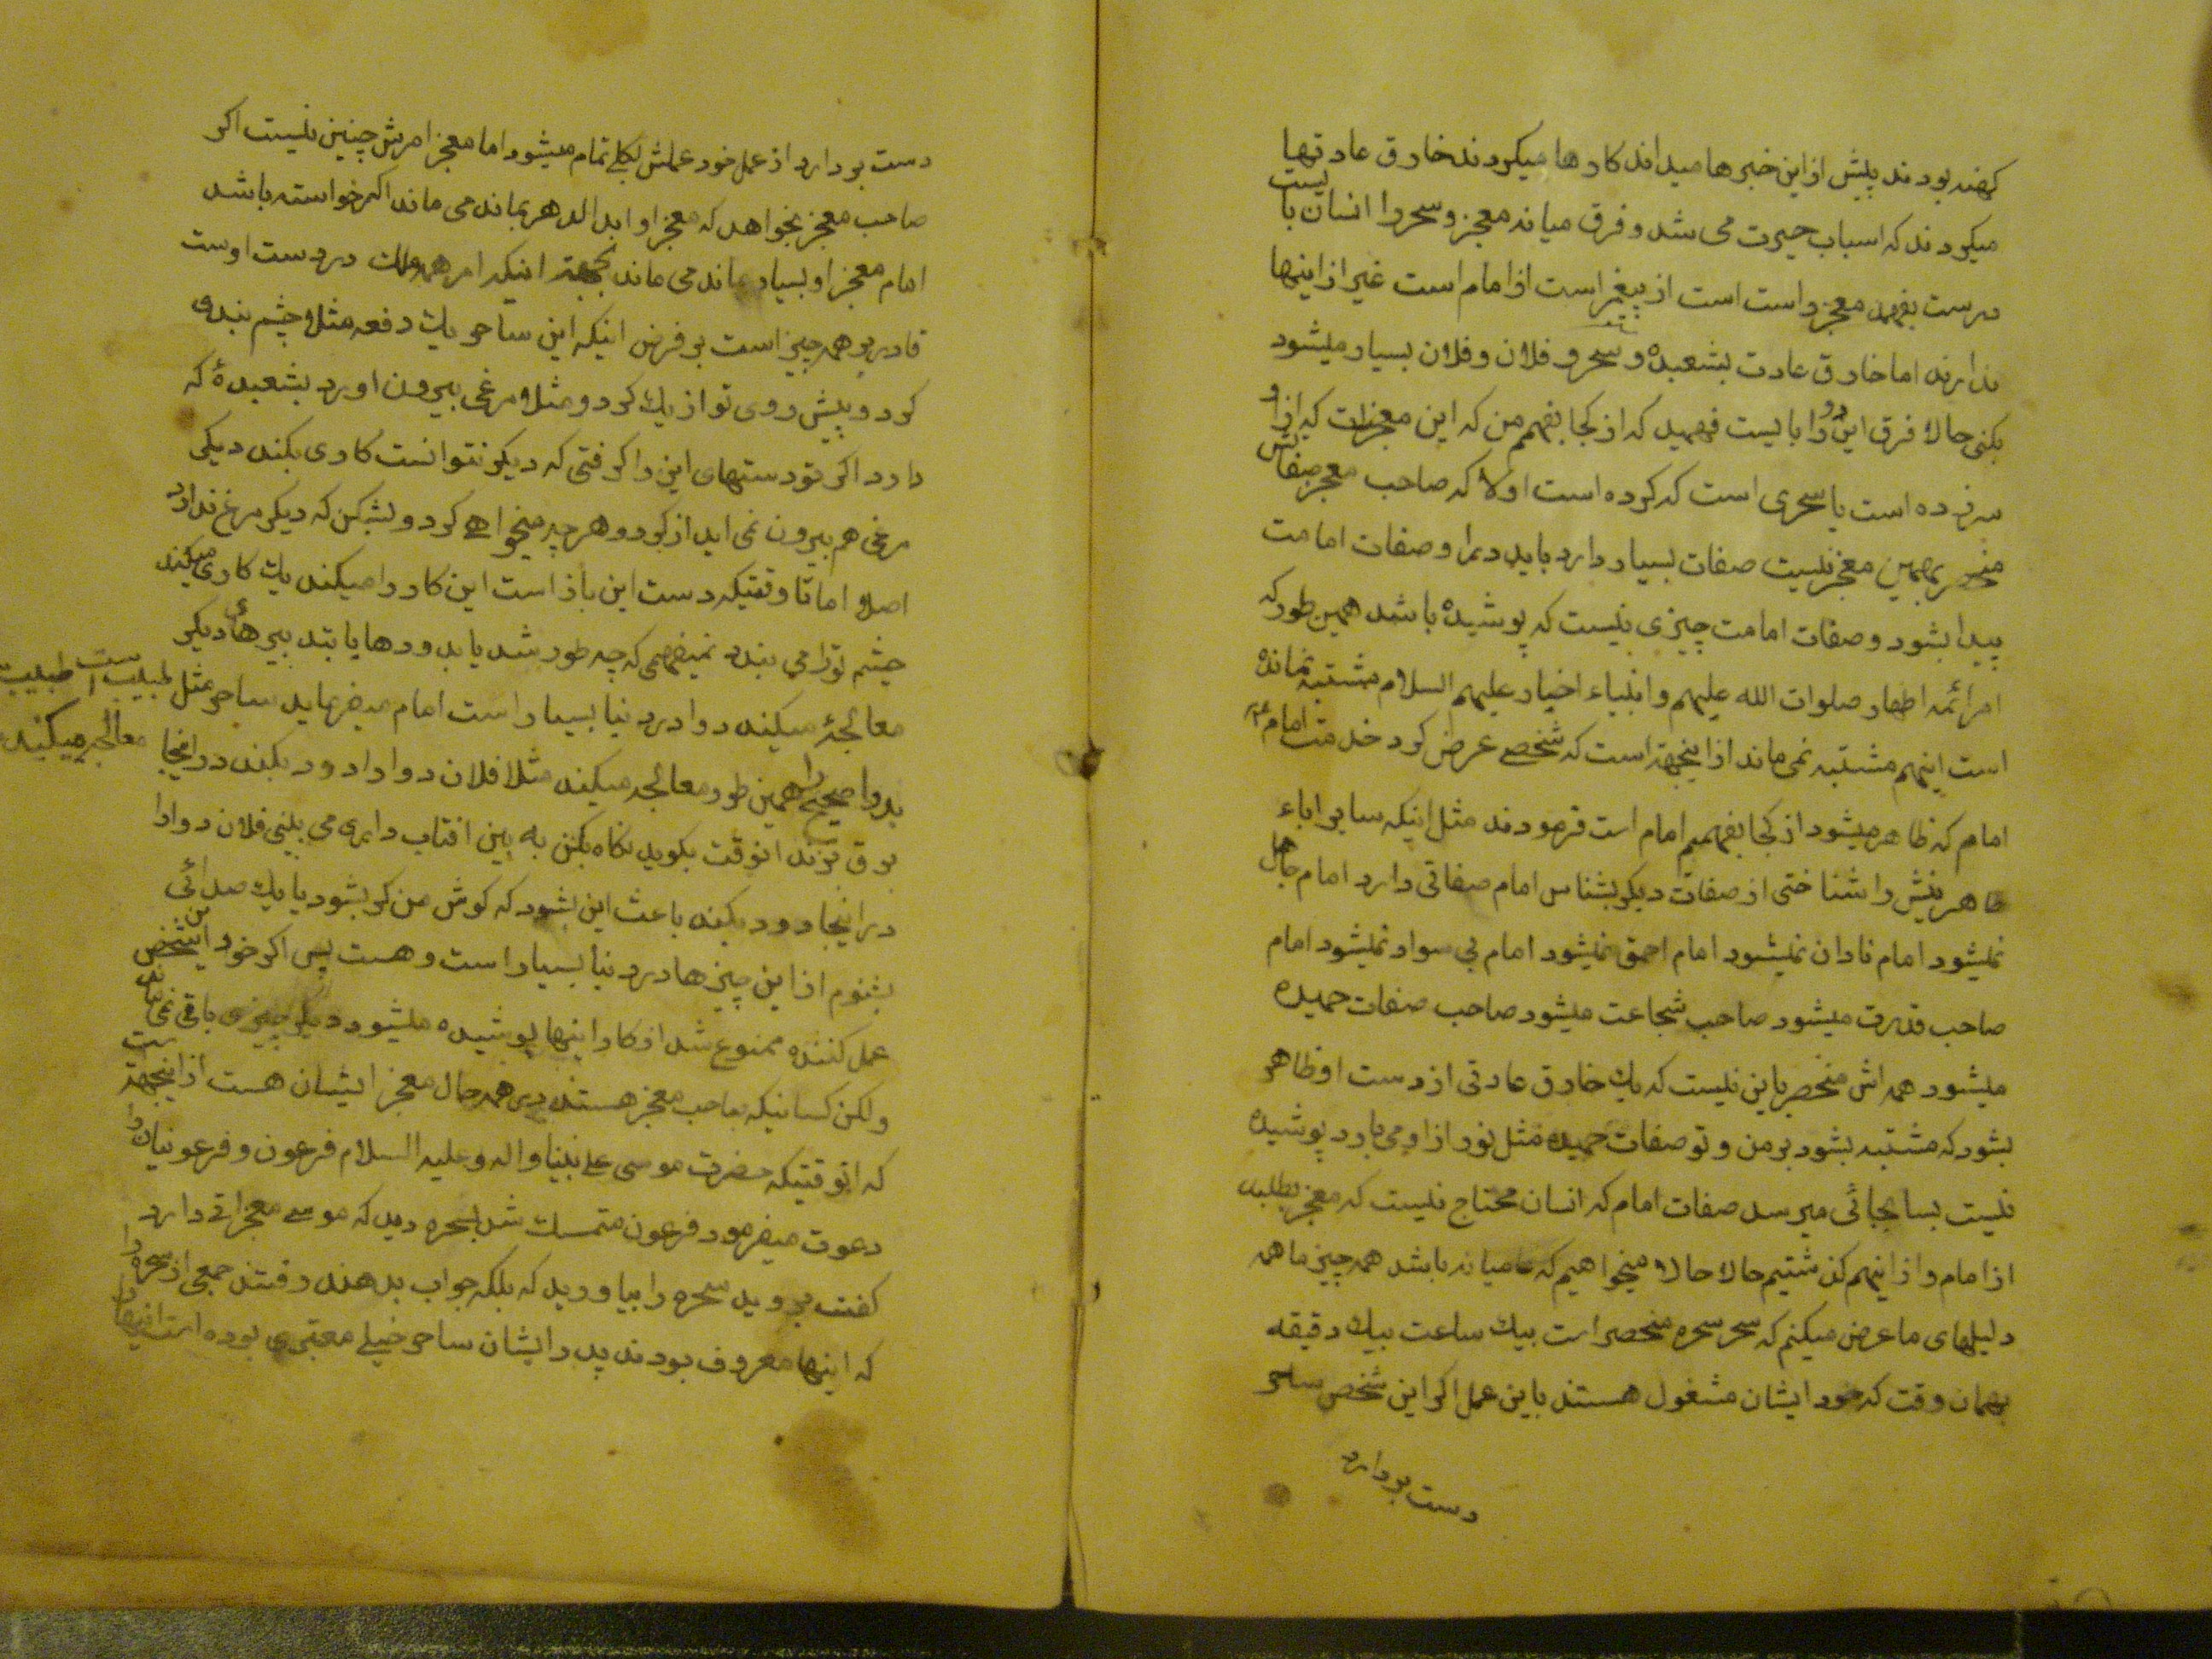 کهنه بودند پیش از این خبرها میداند کارها میکردند خارق عادتها
میکردند که اسباب حیرت می شد و فرق میانه معجز و سحر را انسان بایست
درست بفهمد معجز راست است از پیغمبر است از امام است غیر از اینها
ندارند اما خارق عادت بشعبده و سحر و فلان و فلان بسیار میشود
بکنی حالا فرق این دو را بایست فهمید که از کجا بفهمم من که این معجزات که از او
سرزده است یا سحری است که کرده است اولا که صاحب معجز صفاتش
منحصر بهمین معجز نیست صفات بسیار دارد باید در او صفات امامت
پیدا بشود و صفات امامت چیزی نیست که پوشیده باشد همین طور که
امر ائمه اطهار صلوات الله علیهم و انبیاء اخیار علیهم السلام مشتبه نمانده
است اینهم مشتبه نمی ماند از اینجهة است که شخصی عرض کرد خدمت امام ع
امام که ظاهر میشود از کجا بفهمیم امام است فرمودند مثل اینکه سایر اباء
طاهرینش را شناختی از صفات دیگر بشناس امام صفاتی دارد امام جاهل
نمیشود امام نادان نمیشود امام احمق نمیشود امام بی سواد نمیشود امام
صاحب قدرت میشود صاحب شجاعت میشود صاحب صفات حمیده
میشود همه اش منحصر باین نیست که یک خارق عادتی از دست او ظاهر
بشود که مشتبه بشود بر من و تو صفات حمیده مثل نور از او می بارد پوشیده
نیست بسا بجائی میرسد صفات امام که انسان محتاج نیست که معجز بطلبد
از امام و از اینهم گذشتیم حالا حالا میخواهیم که عامیانه باشد همه چیز ما همه
دلیلهای ما عرض میکنم که سحر سحره منحصر است بیک ساعت بیک دقیقه
بهمان وقت که خود ایشان مشغول هستند باین عمل اگر این شخص ساحر
دست بردارد
دست بردارد از عمل خود عملش بکلی تمام میشود اما معجز امرش چنین نیست اگر
صاحب معجز بخواهد که معجز او ابدالدهر بماند می ماند اگر خواسته باشد
امام معجز او بسیار بماند می ماند بجهة اینکه امر همه ملک در دست اوست
قادر بر همه چیز است بر فرض اینکه این ساحر یک دفعه مثلا چشم بندی
کرد و پیش روی تو از یک گردو مثلا مرغی بیرون اورد بشعبدهٔ که
دارد اگر تو دستهای این را گرفتی که دیگر نتوانست کاری بکند دیگر
مرغی هم بیرون نمی اید از گردو هر چه میخواهی گردو بشکن که دیگر مرغ ندارد
اصلا اما تا وقتیکه دست این باز است این کار را میکند یک کاری میکند
چشم تو را می بندد نمیفهمی که چه طور شد یا بدورها یا بتدبیرهای دیگر
معالجهٔ میکند دوا در دنیا بسیار است امام میفرماید ساحر مثل طبیب است طبیب
بدوا صحیح را همین طور معالجه میکند مثلا فلان دوا را دود بکند در اینجا معالجه میکند
برق بزند انوقت بگوید نگاه بکن به بین افتاب داری می بینی فلان دوا را
در اینجا دود بکند باعث این بشود که گوش من کر بشود یا یک صدائی من
بشنوم از این چیزها در دنیا بسیار است و هست پس اگر خود این شخص
عمل کننده ممنوع شد از کار اینها پوشیده میشود دیگر چیزی باقی نمی ماند
ولکن کسانیکه صاحب معجز هستند در همه حال معجز ایشان هست از اینجهة است
که انوقتیکه حضرت موسی علی نبینا و اله و علیه السلام فرعون و فرعونیان را
دعوت میفرمود فرعون متمسک شد بسحره دید که موسی معجزاتی دارد
گفت بروید سحره را بیاورید که بلکه جواب بدهند رفتند جمعی از سحره را
که اینها معروف بودند پدر ایشان ساحر خیلی معتبری بوده است اینها را